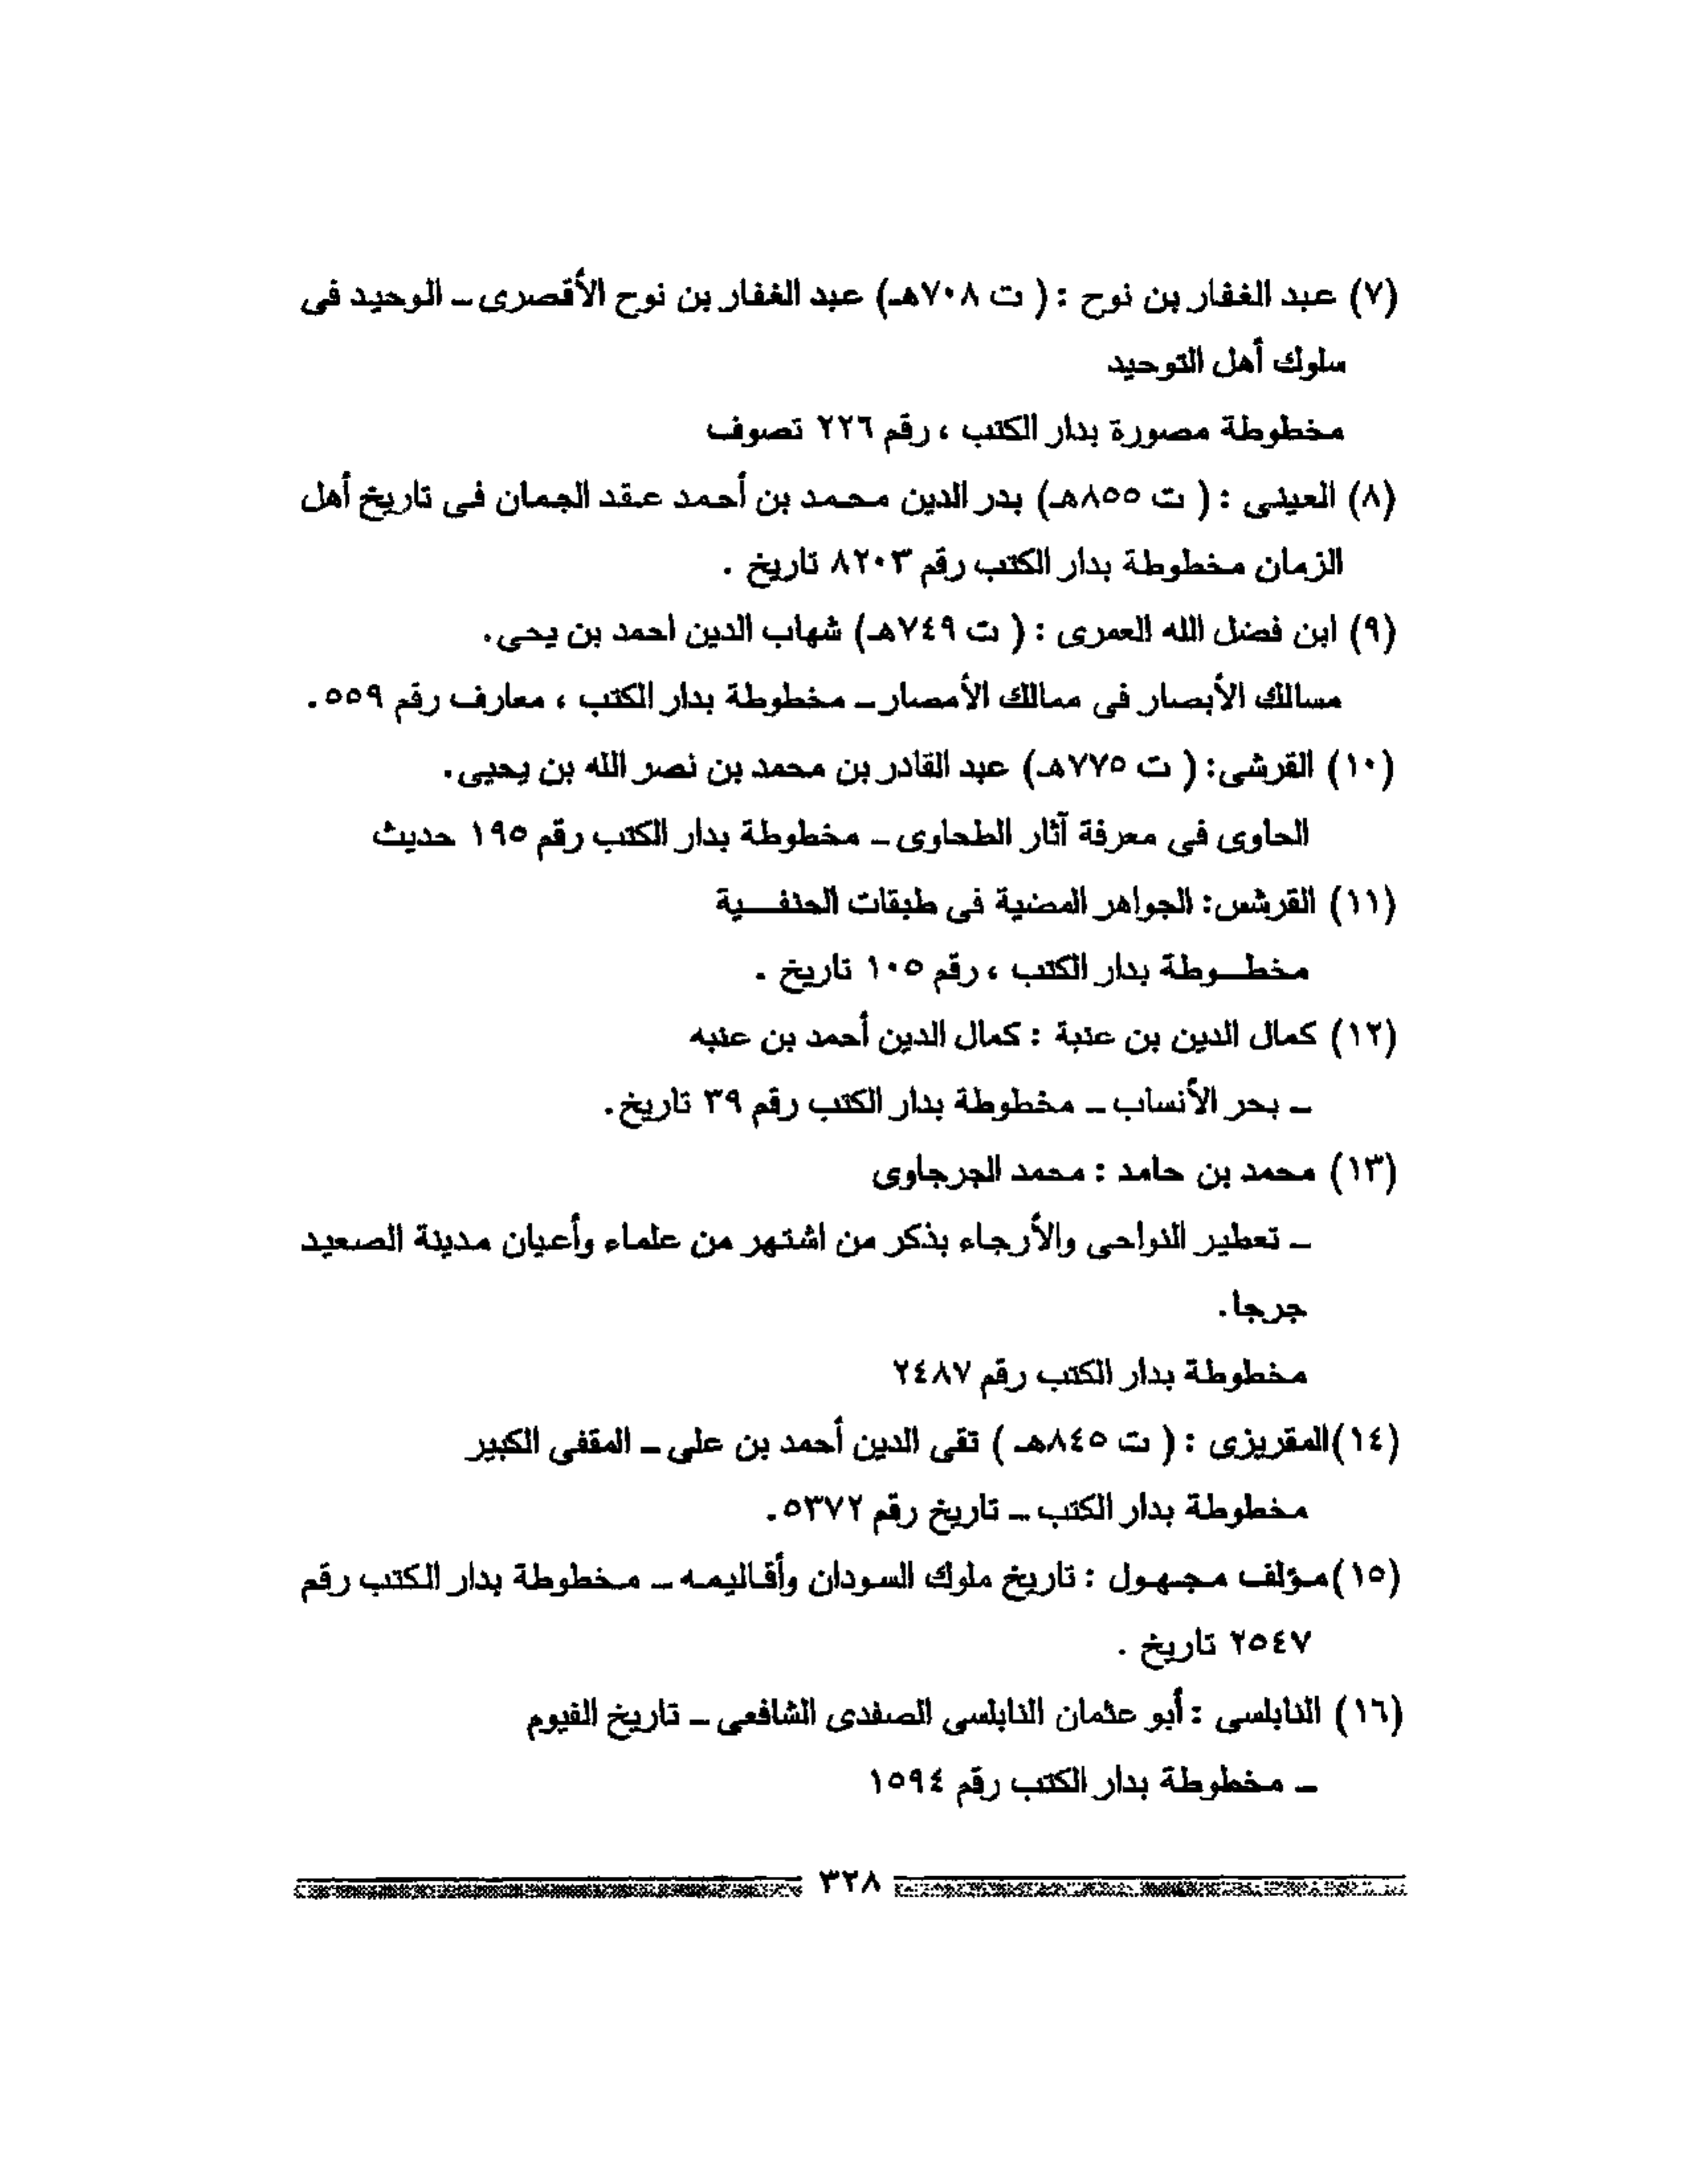 (٧) عبد الغفار بن نوح : ( ت ٧٠٨هـ) عبد الغفار بن نوح الأقصرى ــ الوحيد فى
سلوك أهل التوحيد
مخطوطة مصورة بدار الكتب ، رقم ٢٢٦ تصوف
(٨) العينى : ( ت ٨٥٥هـ) بدر الدين محمد بن أحمد عقد الجمان فى تاريخ أهل
الزمان مخطوطة بدار الكتب رقم ٨٢٠٣ تاريخ .
(٩) ابن فضل الله العمرى : ( ت ٧٤٩هـ) شهاب الدين احمد بن يحى.
مسالك الأبصار فى ممالك الأمصار ــ مخطوطة بدار الكتب ، معارف رقم ٥٥٩.
(١٠) القرشى: ( ت ٧٧٥هـ) عبد القادر بن محمد بن نصر الله بن يحيى.
الحاوى فى معرفة آثار الطحاوى ــ مخطوطة بدار الكتب رقم ١٩٥ حديث
(١١) القرشس: الجواهر المضية فى طبقات الحنفـــية
مخطــوطة بدار الكتب ، رقم ١٠٥ تاريخ .
(١٢) كمال الدين بن عنبة : كمال الدين أحمد بن عنبه
ــ بحر الأنساب ــ مخطوطة بدار الكتب رقم ٣٩ تاريخ.
(١٣) محمد بن حامد : محمد الجرجاوى
ــ تعطير النواحى والأرجاء بذكر من اشتهر من علماء وأعيان مدينة الصعيد
جرجا.
مخطوطة بدار الكتب رقم ٢٤٨٧
(١٤)المقريزى : ( ت ٨٤٥هـ ) تقى الدين أحمد بن على ــ المقفى الكبير
مخطوطة بدار الكتب ــ تاريخ رقم ٥٣٧٢.
(١٥)مؤلف مجهول : تاريخ ملوك السودان وأقاليمه ــ مخطوطة بدار الكتب رقم
٢٥٤٧ تاريخ .
(١٦) النابلسى : أبو عثمان النابلسى الصفدى الشافعى ــ تاريخ الفيوم
ــ مخطوطة بدار الكتب رقم ١٥٩٤
٣٢٨